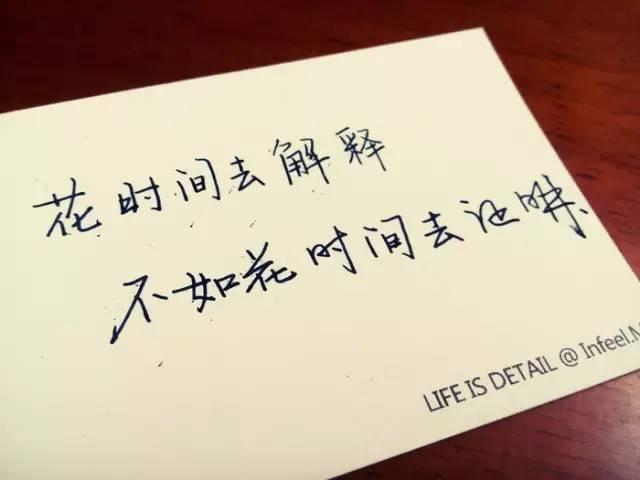 花时间去解释
不如花时间去证明.
LIFE IS DETAIL @ Infeel.M